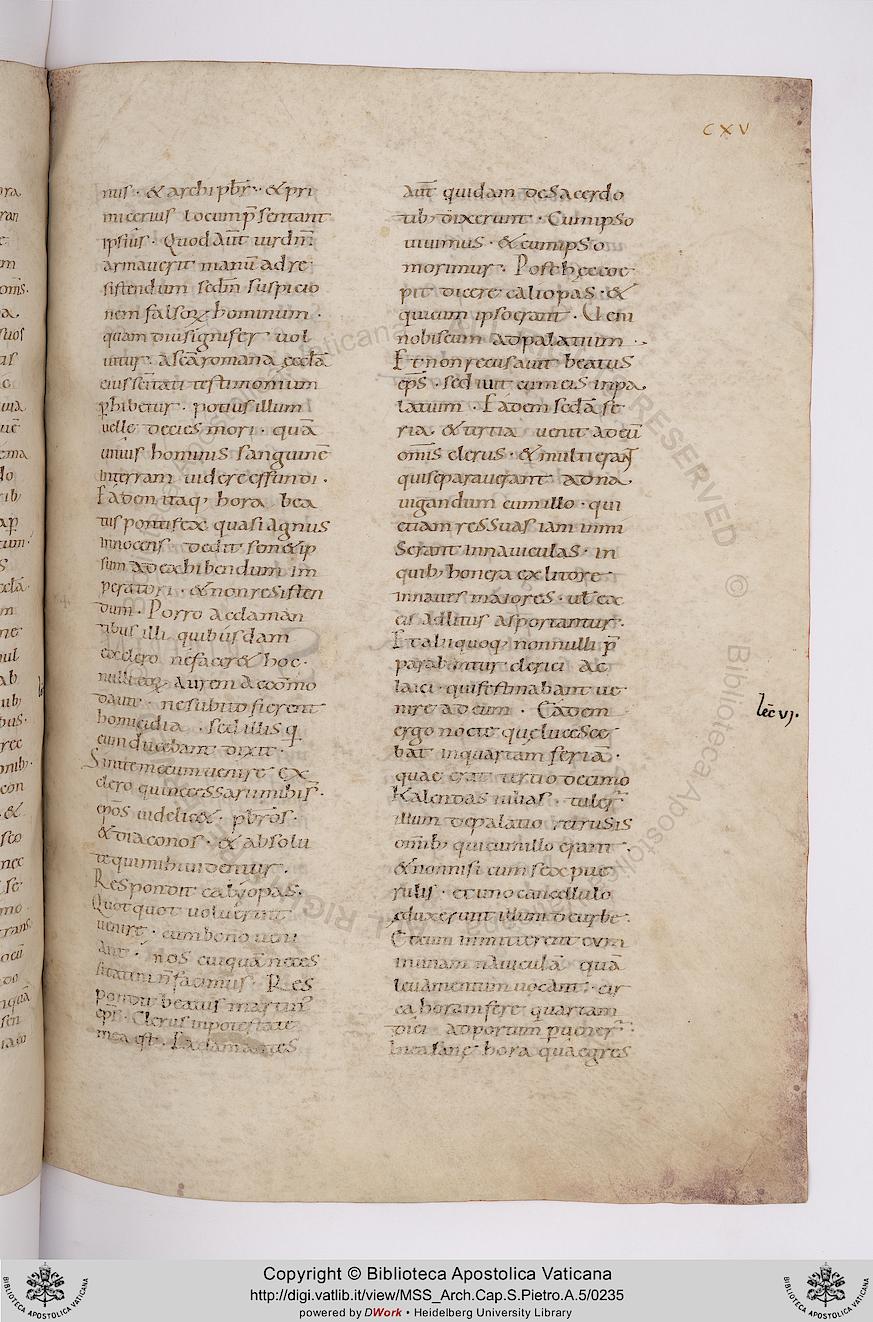 CXV
nus · & archipbr̄ · & pri
micerius locump̄sentant
ipsius · Quod aut̄ uir dn̄i
armauerit manū ad re
sistendum secdm̄ suspicio
nem falsoꝝ hominum ·
quam diu signifer uol
uitur · a scā romana eccłā
eius sc̄itati testimonium
ꝑhibetur · potius illum
uelle decies mori · quā
unius hominis sanguinē
interram uidere effundi ·
Eadem itaq; hora bea
tus pontifex quasi agnus
innocens dedit sem&ip
sum ad exhibendum im
peratori · & non resisten
dum · Porro acclaman
tibus illi quibusdam
ex clero ne facer& hoc ·
nulli eoꝝ aurem accōmo
dauit · ne subito fierent
homicidia · sed illis q̄
eum ducebant dixit ·
Sinite mecum uenire ex
clero qui necessarii mihi s̄ ·
epōs uidelic& · pbrōs ·
& diaconos · & absolu
te qui mihi uidentur ·
Respondit calyopas ·
Quotquot uoluerint
uenire · cum bono ueni
ant · nos cuiquā neces
sitatem n̄ facimus · Res
pondit beatus martin'
ep̄s · Clerus inpotestate
mea est · Exclamantes
aut̄ quidam de sacerdo
tib; dixerunt · Cum ipso
uiuimus · & cum ipso
morimur · Post hęc coe
pit dicere caliopas · &
qui cum ipso erant · Veni
nobiscum ad palatium ·
Et non recusauit beatus
ep̄s · sed iuit cum eis in pa
latium · Eadem secdā fe
ria · & tertia uenit ad eū
omīs clerus · & multi erant
qui se parauerant ad na
uigandum cum illo · qui
etiam res suas iam inmi
serant in nauiculas · in
quib; honera ex litore
in naues maiores · ut ex
eis ad litus asportantur ·
Et alii quoq; nonnulli p̄
parabantur clerici ac
laici · qui festinabant ue
nire ad eum · Eadem
lec̄ vj.
ergo nocte quę lucesce
bat in quartam feriā ·
quae erat tertio decimo
Kalendas iulias · tuler̄
illum de palatio retrusis
omīb; qui cum illo erant ·
& nonnisi cum sex pue
rulis · et uno cancellulo
eduxerunt illum de urbe ·
Et cum inmitterent eum
in unam nauiculā quā
leuamentum uocant · cir
ca horam fere quartam
diei ad portum ꝑuener̄ ·
In ea sane hora qua egres
Copyright © Biblioteca Apostolica Vaticana
http://digi.vatlib.it/view/MSS_Arch.Cap.S.Pietro.A.5/0235
powered by DWork • Heidelberg University Library